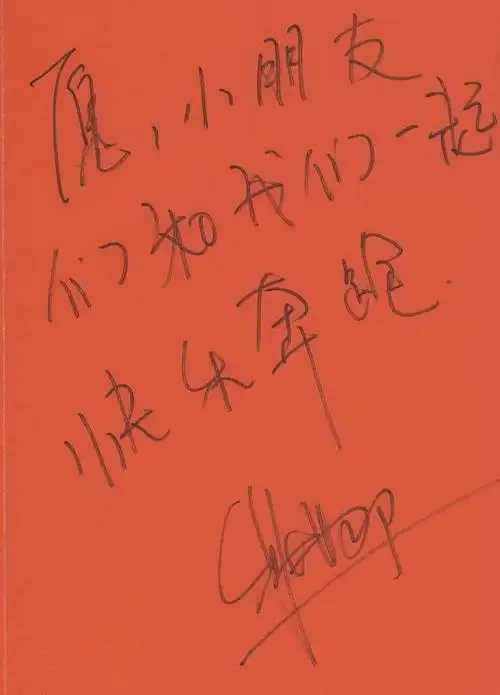 愿小朋友
们和我们一起
快乐奔跑.